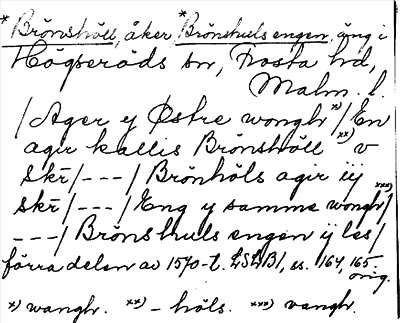 *Brönshöll, åker, *Brönshuls engen, äng i
Högseröds sn, Frosta hd,
Malm. l.
/Ager y Østre wonghx)/En
agir kallis Brönshöllxx) v
skr̄/---/ Brönhöls agir iij
skr̄/---/Eng y samme wonghxxx)/
---/ Brönshuls engen ij les/
förra delen av 1570-t. LSLB1, ss. 164, 165
orig.
x) wangh. xx) -höls. xxx) vangh.